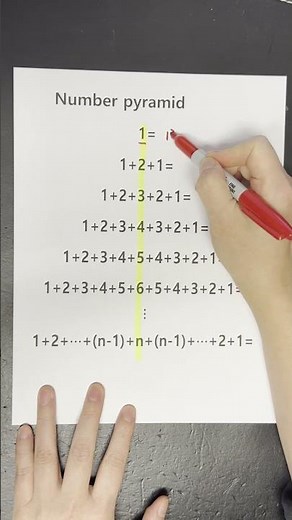 Number pyramid
1= 1
1+2+1=
1+2+3+2+1=
1+2+3+4+3+2+1=
1+2+3+4+5+4+3+2+1=
1+2+3+4+5+6+5+4+3+2+1=
⋮
1+2+⋯+(n-1)+n+(n-1)+⋯+2+1=